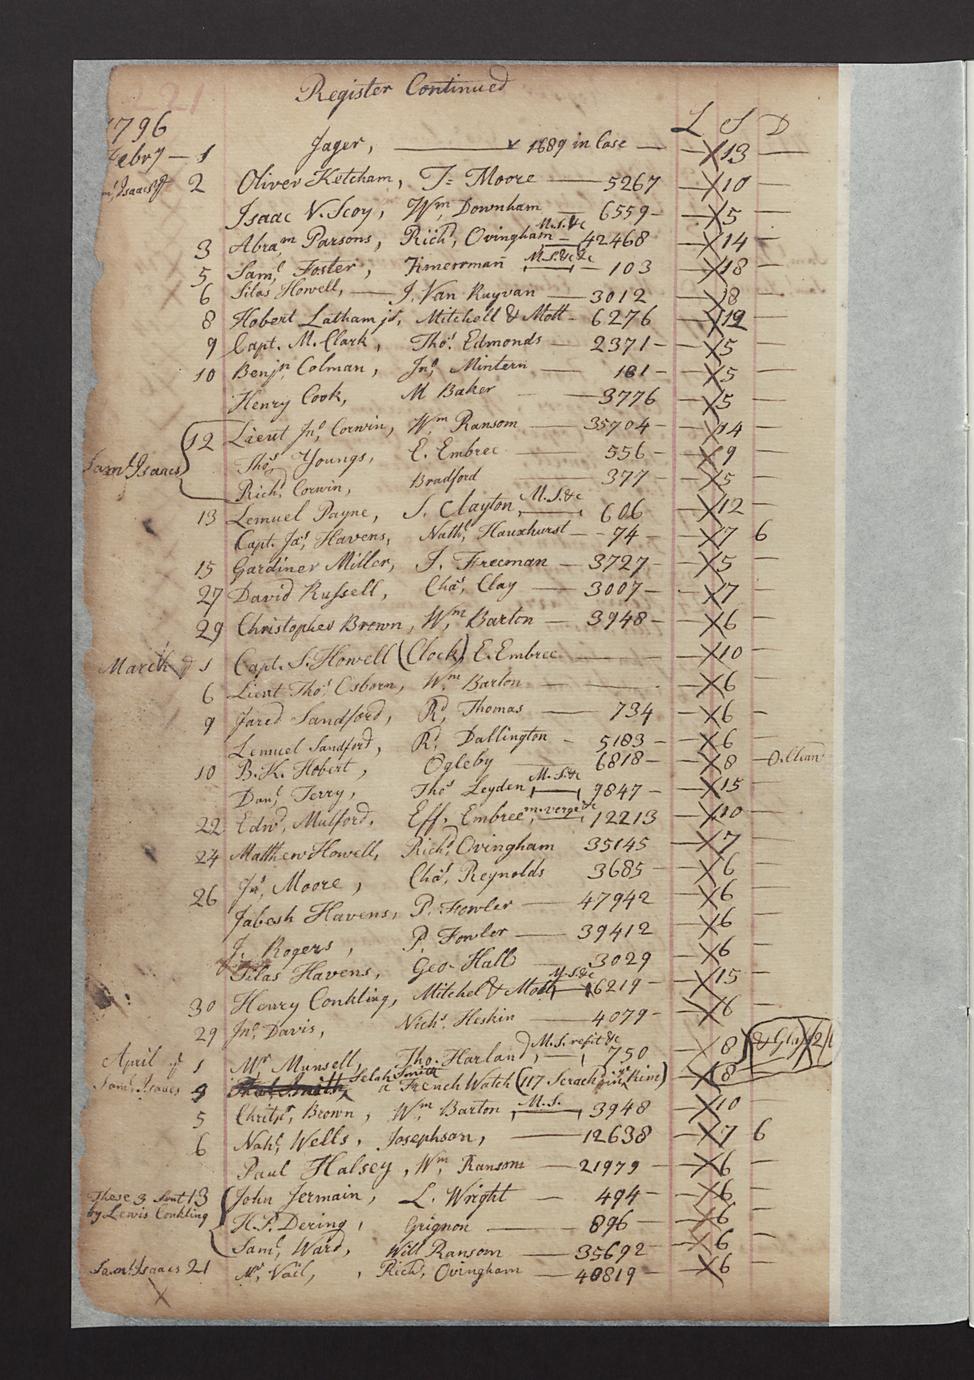 Register Continued
1796
L S D
Febry — 1 Jager, — 1689 in Case — 13 —
Saml Isaacs 2 Oliver Ketcham, T= Moore — 5267 — 10 —
Isaac V. Scoy, Wm Downham — 6559 — 5 —
3 Abram Parsons, Richd Ovingham M.S.&c — 42468 — 14 —
5 Saml Foster, Timerman M.S.&c — 103 — 18 —
6 Silas Howell, — J. Van Ruyvan — 3012 — 8 —
8 Hobert Latham jr, Mitchell & Mott — 6276 — 12 —
9 Capt. M. Clark, Thos Edmonds — 2371 — 5 —
10 Benjn Colman, Jno Mintern — 181 — 5 —
Henry Cook, M Baker — 3776 — 5 —
12 Lieut Jno Corwin, Wm Ransom — 35704 — 14 —
Saml Isaacs Thos Youngs, E. Embree — 556 — 9 —
Richd Corwin, Bradford — 377 — 5 —
13 Lemuel Payne, S. Clayton, M.S.&c — 606 — 12 —
Capt. Jas Havens, Nathl Hauxhurst — 74 — 7 6
15 Gardiner Miller, J. Freeman — 3727 — 5 —
27 David Russell, Chas Clay — 3007 — 7 —
29 Christopher Brown, Wm Barton — 3948 — 6 —
March 1 Capt. S. Howell (Clock) E. Embree — 10 —
6 Lieut Thos Osborn, Wm Barton — — 6 —
9 Jared Sandford, Rd Thomas — 734 — 6 —
Lemuel Sandford, Rd Dallington — 5183 — 6 —
10 B. K. Hobert, Ogleby — 6818 — 8 — O. Clean
Danl Terry, Thos Leyden M.S.&c — 9847 — 15 —
22 Edwd Mulford, Eff. Embree m. verge &c — 12213 — 10 —
24 Matthew Howell, Richd Ovingham 35145 — 7 —
26 Jno Moore, Chas Reynolds 3685 — 6 —
Jabesh Havens, P. Fowler — 47942 — 6 —
J. Rogers, P. Fowler — 39412 — 6 —
Silas Havens, Geo. Hall — 3029 — 6 —
30 Henry Conkling, Mitchel & Mott M.S.&c — 6219 — 15 —
29 Jno Davis, Nichs Heskin — 4079 — 6 —
April 1 Mr Munsell, Tho. Harland, M.S. refit &c — 750 — 8 & Glass 2/
Saml Isaacs 4 Selah Smith a French Watch (117 Scrach in ye Rim) 8
5 Christr Brown, Wm Barton, M.S. — 3948 — 10 —
6 Nathl Wells, Josephson, — 12638 — 7 6
Paul Halsey, Wm Ransom — 21979 — 6 —
These 3 Sent 13 John Jermain, L. Wright — 494 — 6 —
by Lewis Conkling H. P. Dering, Grignon — 896 — 6 —
Saml Ward, Will Ransom — 35692 — 6 —
Saml Isaacs 21 Mr Vail, Richd Ovingham — 40819 — 6 —